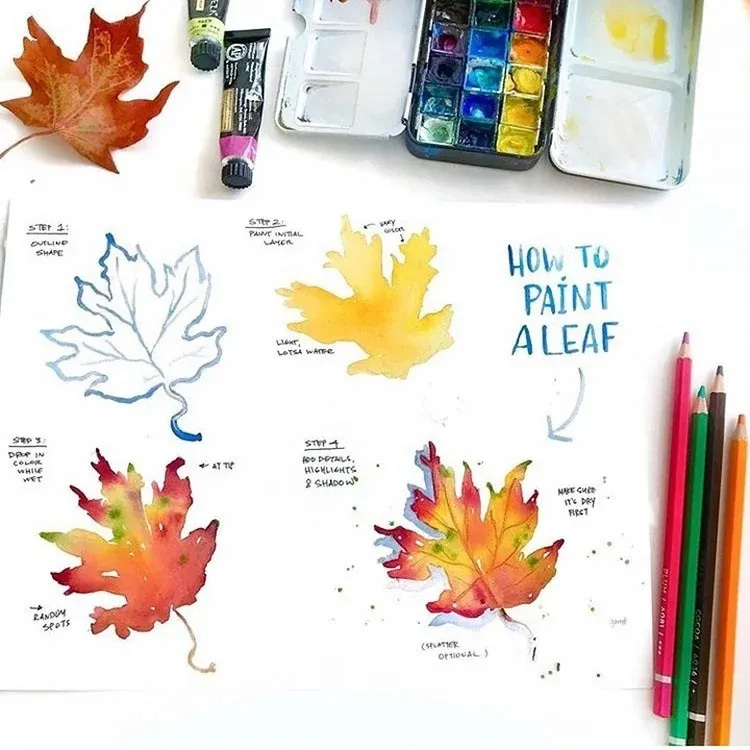 STEP 1:
OUTLINE
SHAPE
STEP 2:
PAINT INITIAL
LAYER
LIGHT,
LOTSA WATER
HOW TO
PAINT
A LEAF
STEP 3
DROP IN
COLOR
WHILE
WET
AT TIP
RANDOM
SPOTS
STEP 4
ADD DETAILS,
HIGHLIGHTS
& SHADOW
MAKE SURE
IT'S DRY
FIRST
(SPLATTER
OPTIONAL)